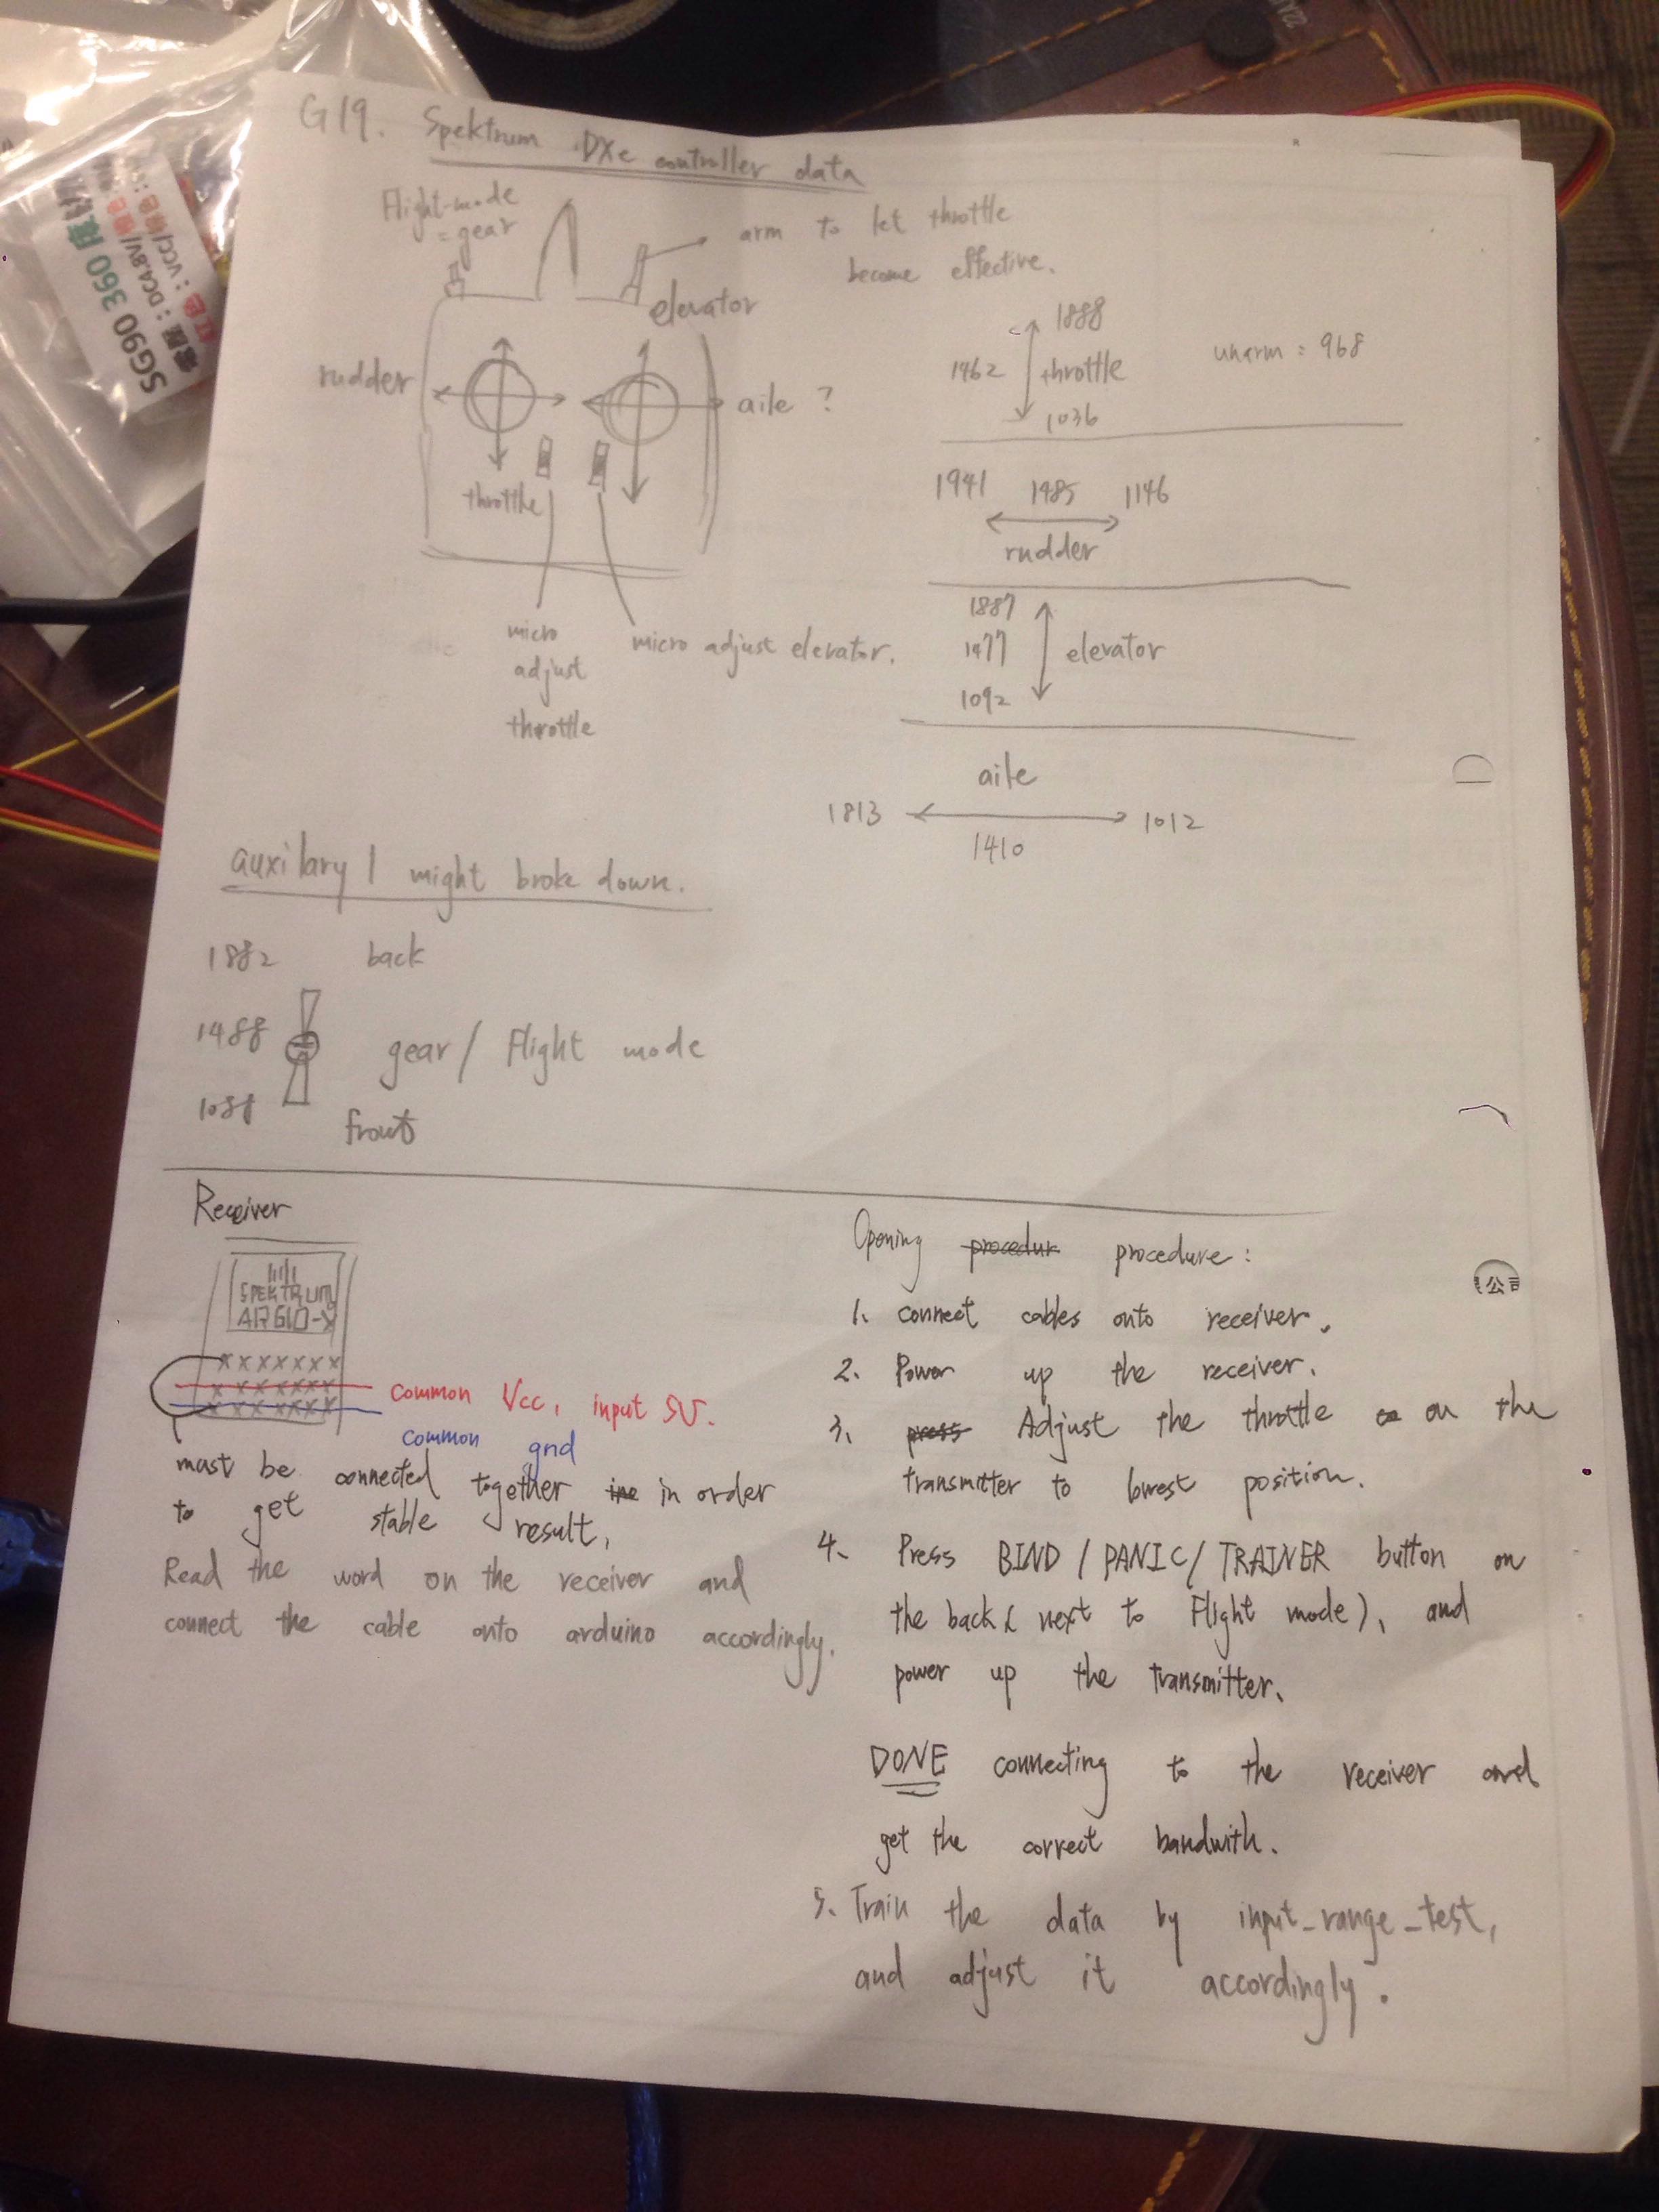 G19. Spektrum DXe controller data
Flight-mode
= gear
arm to let throttle
become effective.
elevator
rudder
aile ?
throttle
micro
adjust
throttle
micro adjust elevator.
1888
1462 throttle
1036
unarm = 968
1941 1485 1146
rudder
1887
1477 elevator
1092
aile
1813 1012
1410
auxilary 1 might broke down.
1882 back
1488 gear / Flight mode
1088
front
Receiver
SPEKTRUM
AR610-X
x x x x x x x
x x x x x x x
x x x x x x x
common Vcc, input 5V.
common gnd
must be connected together in order
to get stable result,
Read the word on the receiver and
connect the cable onto arduino accordingly.
Opening procedur procedure :
1、 connect cables onto receiver.
2. Power up the receiver.
3、 press Adjust the throttle on the
transmitter to lowest position.
4、 Press BIND / PANIC / TRAINER button on
the back ( next to Flight mode ), and
power up the transmitter.
DONE connecting to the receiver and
get the correct bandwith.
5、 Train the data by input_range_test,
and adjust it accordingly.
SG90 360
DC4.8V/
: VCC/
公司